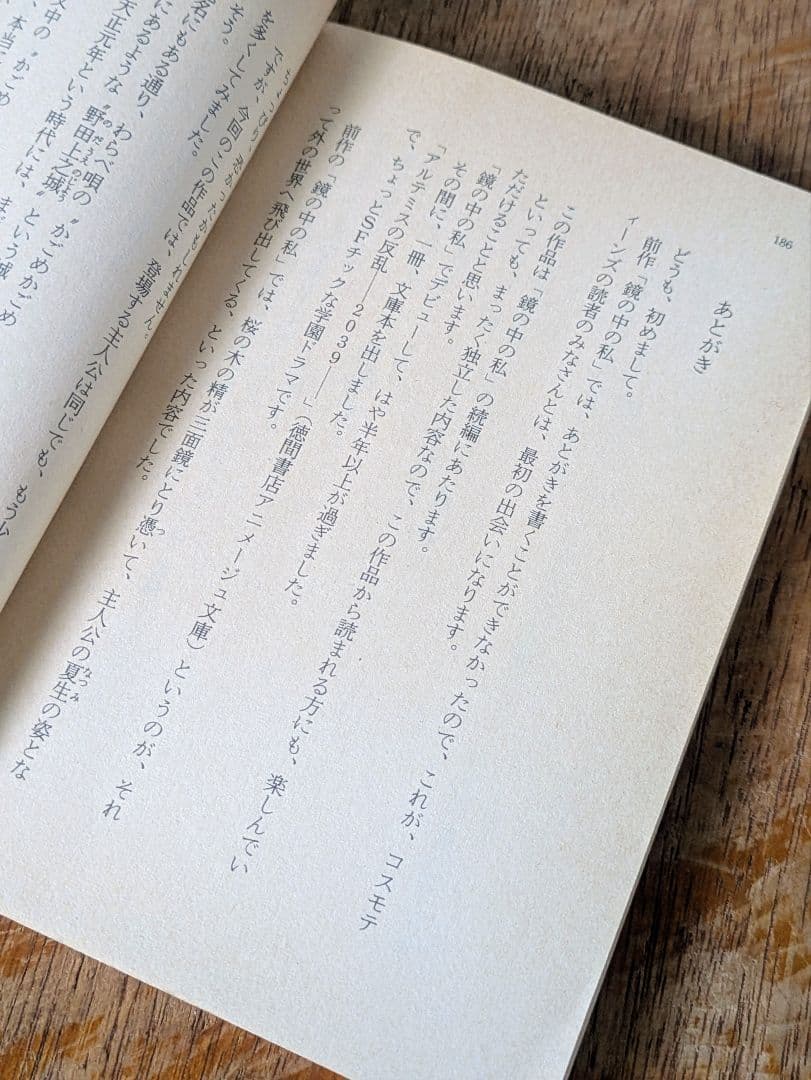 186
あとがき
どうも、初めまして。
前作「鏡の中の私」では、あとがきを書くことができなかったので、これが、コスモテ
ィーンズの読者のみなさんとは、最初の出会いになります。
この作品は「鏡の中の私」の続編にあたります。
といっても、まったく独立した内容なので、この作品から読まれる方にも、楽しんでい
ただけることと思います。
「鏡の中の私」でデビューして、はや半年以上が過ぎました。
その間に、一冊、文庫本を出しました。
「アルテミスの反乱――2039――」(徳間書店アニメージュ文庫)というのが、それ
で、ちょっとSFチックな学園ドラマです。
前作の「鏡の中の私」では、桜の木の精が三面鏡にとり憑いて、主人公の夏生の姿とな
って外の世界へ飛び出してくる、といった内容でした。
かったかもしれません。
ですが、今回のこの作品では、登場する主人公は同じでも、もう少
を多くしてみました。
そう。
名にもある通り、わらべ唄の〝かごめかごめ
にあるような〝野田上之城〟という城
天正元年という時代には、ま
文中の〝かごめ
、本当